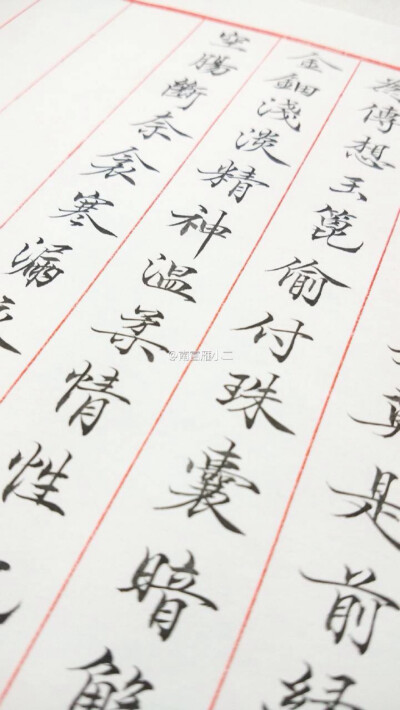 真是前緣
為傳想玉篦偷付珠囊暗解
金鈿淺淡精神溫柔情性
空腸斷奈衾寒漏
@南宫雁小二